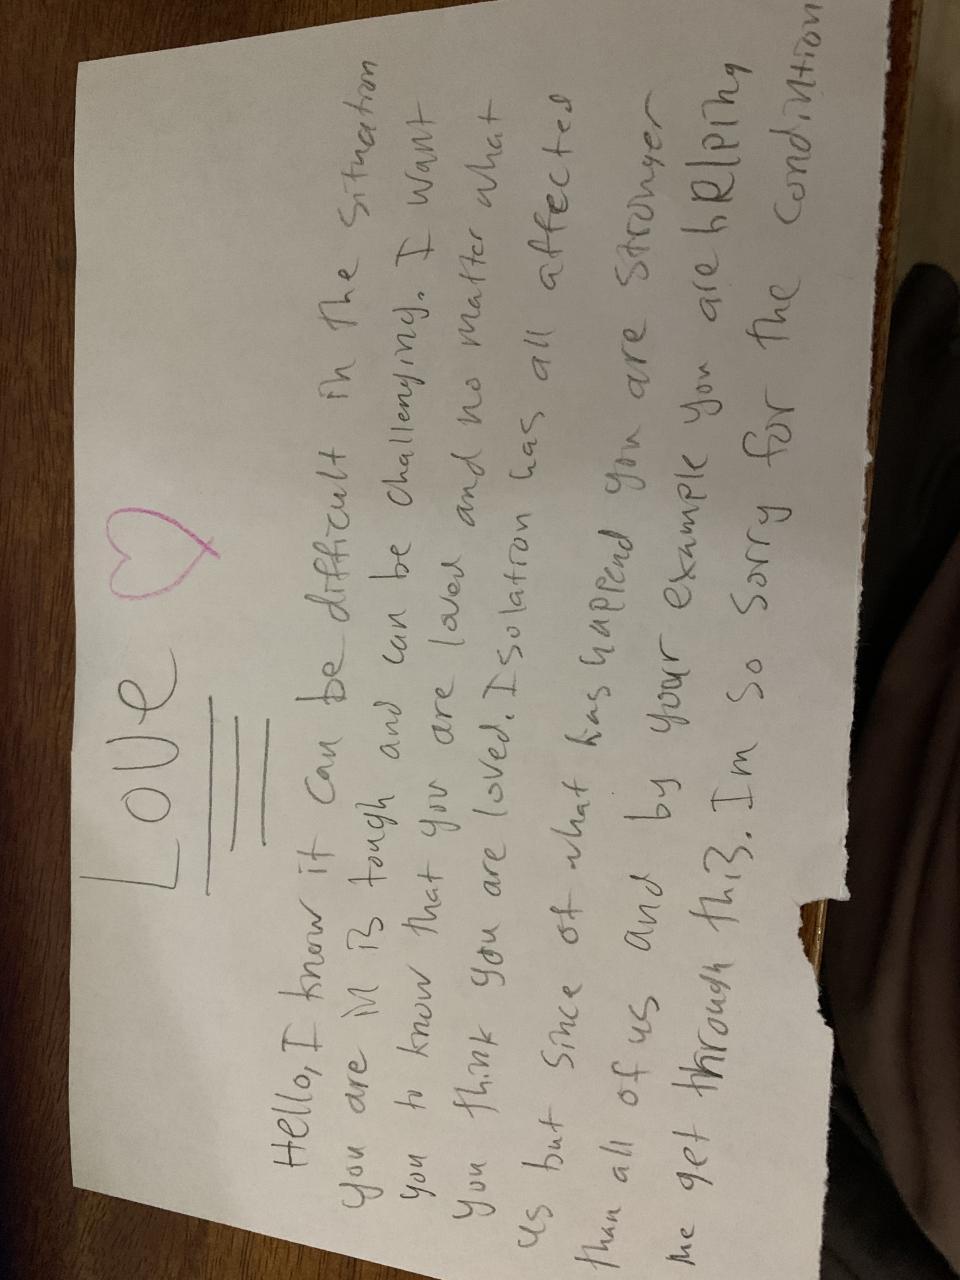 Love
Hello, I know it can be difficult in the situation
you are in is tough and can be challenging. I want
you to know that you are loved and no matter what
you think you are loved. Isolation has all affected
us but since of what has happend you are stronger
than all of us and by your example you are helping
me get through this. Im so sorry for the condintion